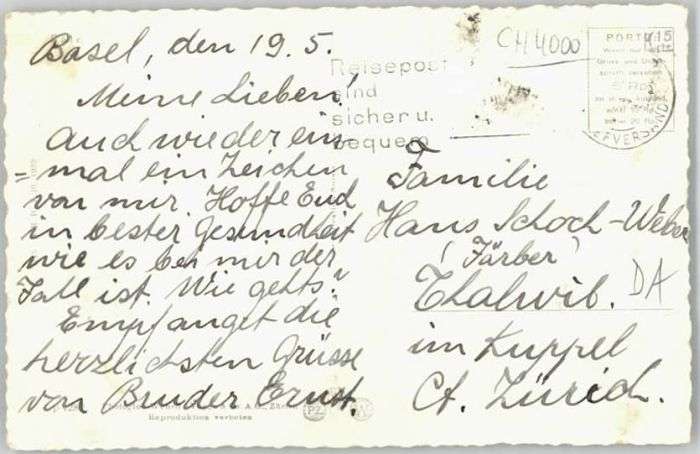 Basel, den 19. 5.
Meine Lieben!
Auch wieder ein
= mal ein Zeichen
von mir. Hoffe Eud
in bester Gesundheit
wie es bei mir der
Fall ist. Wie gehts?
Empfanget die
herzlichsten Grüsse
von Bruder Ernst.
Reproduktion verboten
PZ
CH 4000
Reisepost
sind
sicher u.
bequem
PORTO
Familie
Hans Schoch-Weber
(Färber)
Thalwil.
DA
im Kuppel
Ct. Zürich.